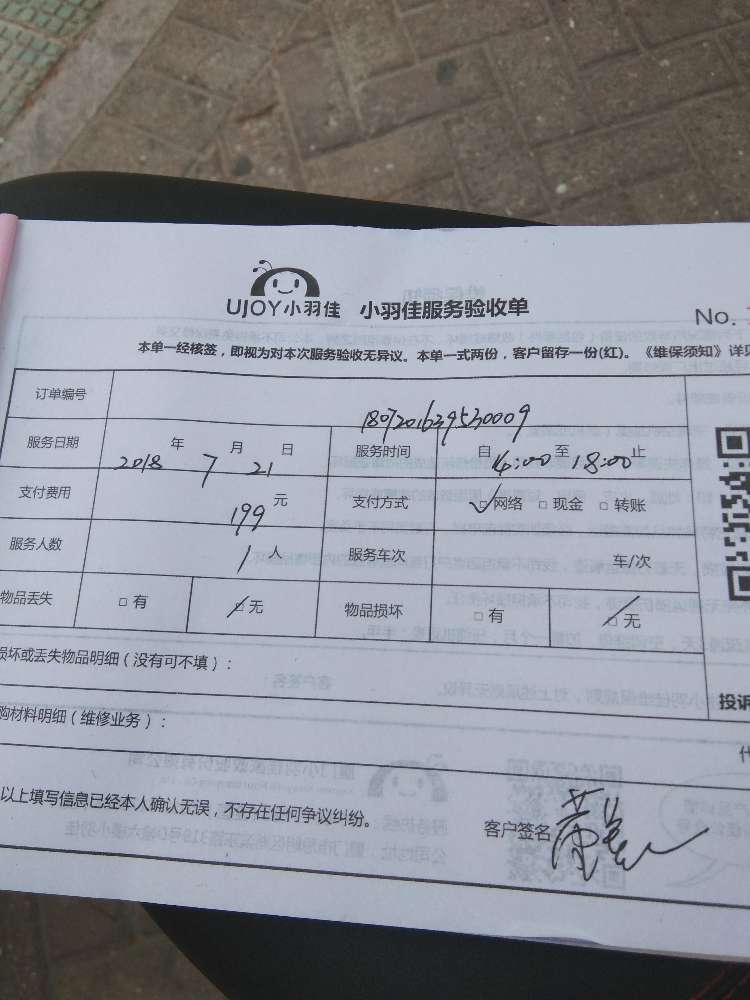 UJOY小羽佳 小羽佳服务验收单
No.
本单一经核签，即视为对本次服务验收无异议。本单一式两份，客户留存一份(红)。《维保须知》详见
订单编号 1807201639530009
服务日期 2018 年 7 月 21 日 服务时间 自 14:00 至 18:00 止
支付费用 199 元 支付方式 网络 现金 转账
服务人数 1 人 服务车次 车/次
物品丢失 有 无 物品损坏 有 无
损坏或丢失物品明细（没有可不填）：
投诉
购材料明细（维修业务）：
以上填写信息已经本人确认无误，不存在任何争议纠纷。
客户签名